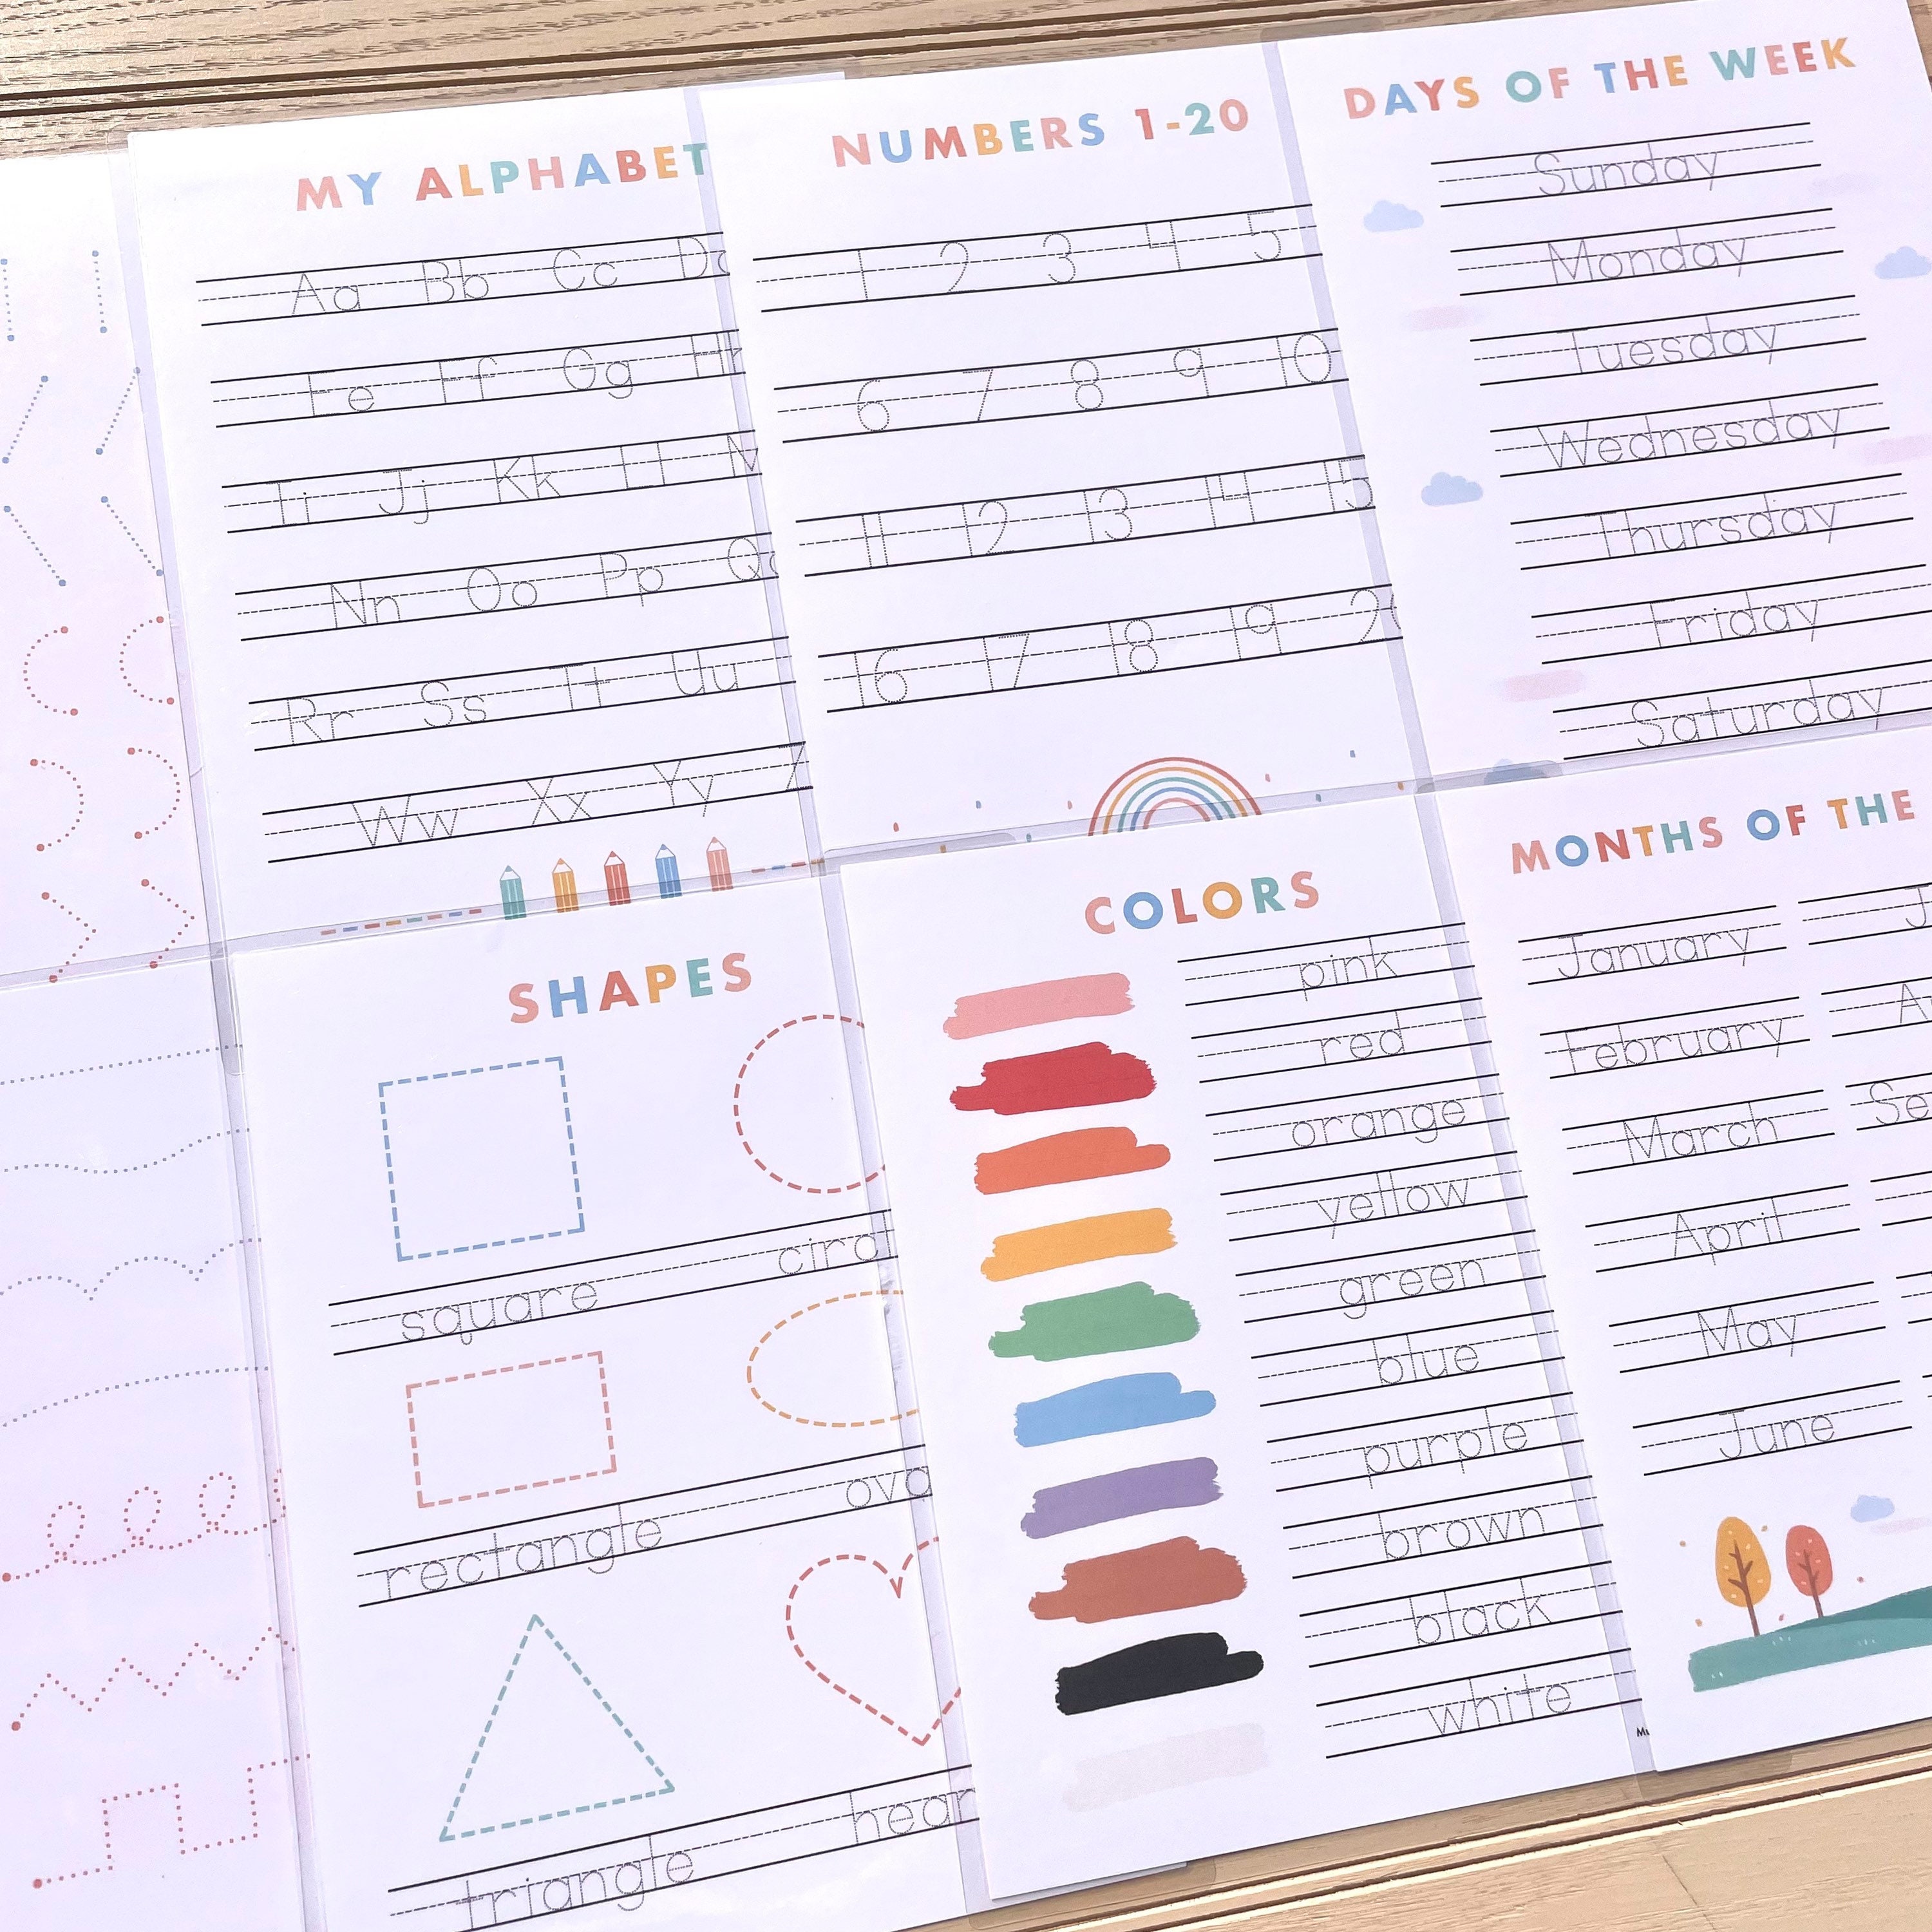 MY ALPHABET
Aa Bb Cc D
Ee Ff Gg H
Ii Jj Kk Ll M
Nn Oo Pp Q
Rr Ss Tt Uu
Ww Xx Yy Z
NUMBERS 1-20
1 2 3 4 5
6 7 8 9 10
11 12 13 14 15
16 17 18 19 2
DAYS OF THE WEEK
Sunday
Monday
Tuesday
Wednesday
Thursday
Friday
Saturday
SHAPES
square circl
rectangle ova
triangle hear
COLORS
pink
red
orange
yellow
green
blue
purple
brown
black
white
MONTHS OF THE
January J
February Au
March Se
April
May
June